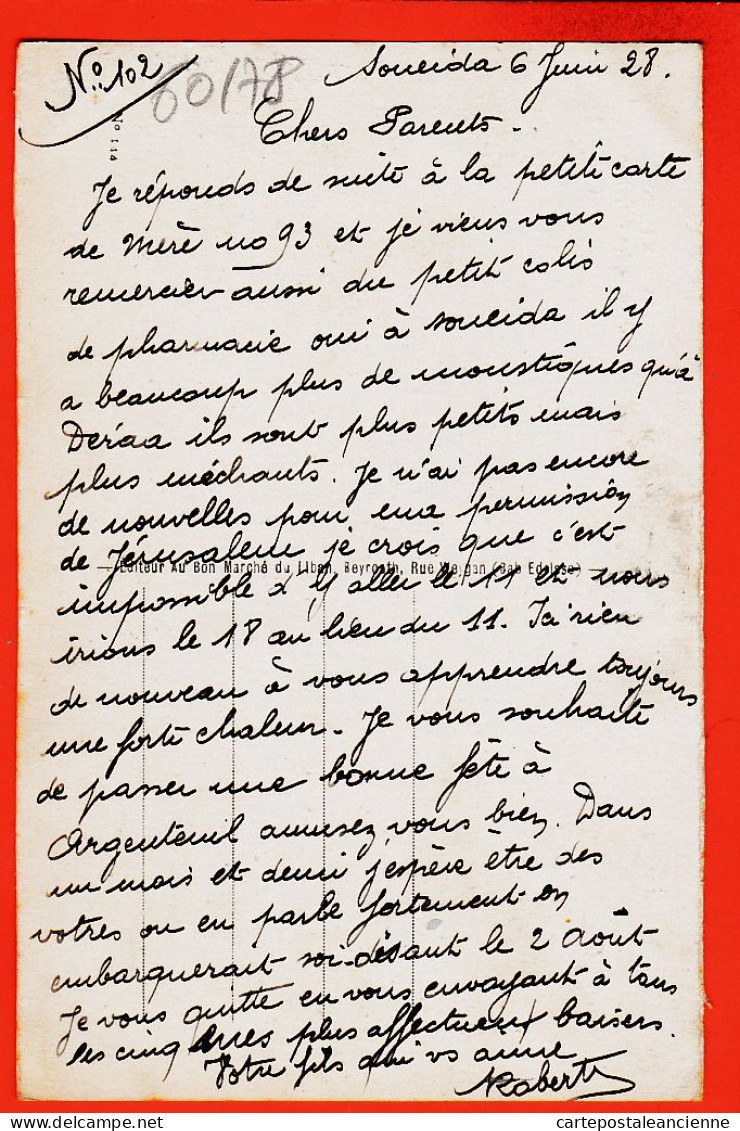 No 102
60/78
Soueida 6 Juin 28.
No 144
Chers Parents.
Je réponds de suite à la petite carte
de mère no 93 et je viens vous
remercier aussi du petit colis
de pharmacie oui à soueida il y
a beaucoup plus de moustiques qu'à
Deraa ils sont plus petits mais
plus méchants. Je n'ai pas encore
de nouvelles pour ma permission
de Jérusalem je crois que c'est
— Editeur Au Bon Marché du Liban, Beyrouth, Rue Weygan (Bab Edcisse) —
impossible d'y aller le 11 et nous
irions le 18 au lieu du 11. J'ai rien
de nouveau à vous apprendre toujours
une forte chaleur. Je vous souhaite
de passer une bonne fête à
Argenteuil amusez vous bien. Dans
un mois et demi j'espère être des
votres ou en parle fortement on
embarquerait soi-disant le 2 août
Je vous quitte en vous envoyant à tous
les cinq mes plus affectueux baisers.
Votre fils qui vs aime
Robert
delcampe.net
cartepostaleancienne